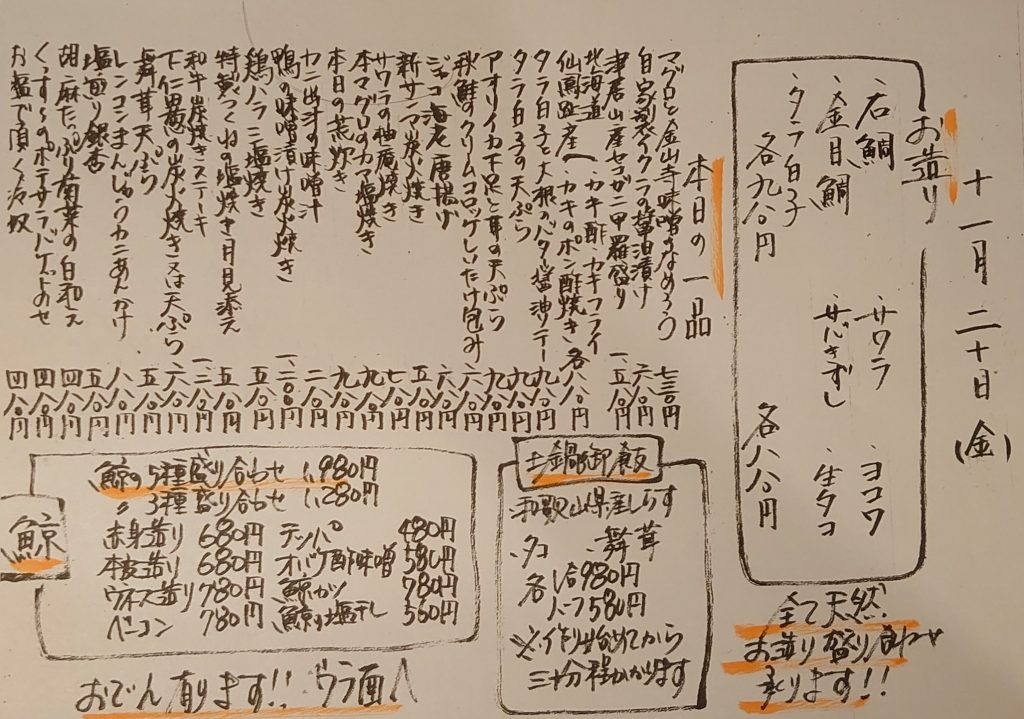 十一月二十日(金)
お造り
・石鯛
・金目鯛
・タラ白子
各九八〇円
・サワラ
・サバきずし
・ヨコワ
・生タコ
各八八〇円
全て天然
お造り盛り合わせ
承ります!!
本日の一品
マグロと金山寺味噌のなめろう 七三〇円
自家製イクラの醤油漬け 六八〇円
津居山産セコガニ甲羅盛り 一、五八〇円
北海道
仙鳳趾産へ・カキ酢・カキフライ
・カキのポン酢焼き 各八八〇円
タラ白子と大根のバター醤油ソテー 九八〇円
タラ白子の天ぷら 九八〇円
アオリイカ下足と茸の天ぷら 九八〇円
秋鮭のクリームコロッケしいたけ包み 六八〇円
ジャコ海老唐揚げ 六八〇円
新サンマ炭火焼き 五八〇円
サワラの柚庵焼き 七八〇円
本マグロのカマ塩焼き 九八〇円
本日の荒炊き 九八〇円
カニ出汁の味噌汁 二八〇円
鴨の味噌漬け炭火焼き 一、二八〇円
鶏ハラミ塩焼き 五八〇円
特製つくねの塩焼き月見添え 五八〇円
和牛炭焼きステーキ 一、二八〇円
下仁田葱の炭火焼き又は天ぷら 六八〇円
舞茸天ぷら 五八〇円
レンコンまんじゅうカニあんかけ 八八〇円
塩煎り銀杏 五八〇円
胡麻たっぷり菊菜の白和え 四八〇円
くっすらのポテサラバゲットのせ 四八〇円
お塩で頂く冷奴 四八〇円
土鍋御飯
・和歌山県産しらす
・タコ ・舞茸
各一合980円
ハーフ580円
※作り始めてから
三十分程かかります
鯨
鯨の5種盛り合わせ 1,980円
〃3種盛り合わせ 1,280円
赤身造り 680円 テッパ 480円
本皮造り 680円 オバケ酢味噌 580円
ウネス造り 780円 鯨カツ 780円
ベーコン 780円 鯨の塩干し 560円
おでん有ります!!ウラ面へ